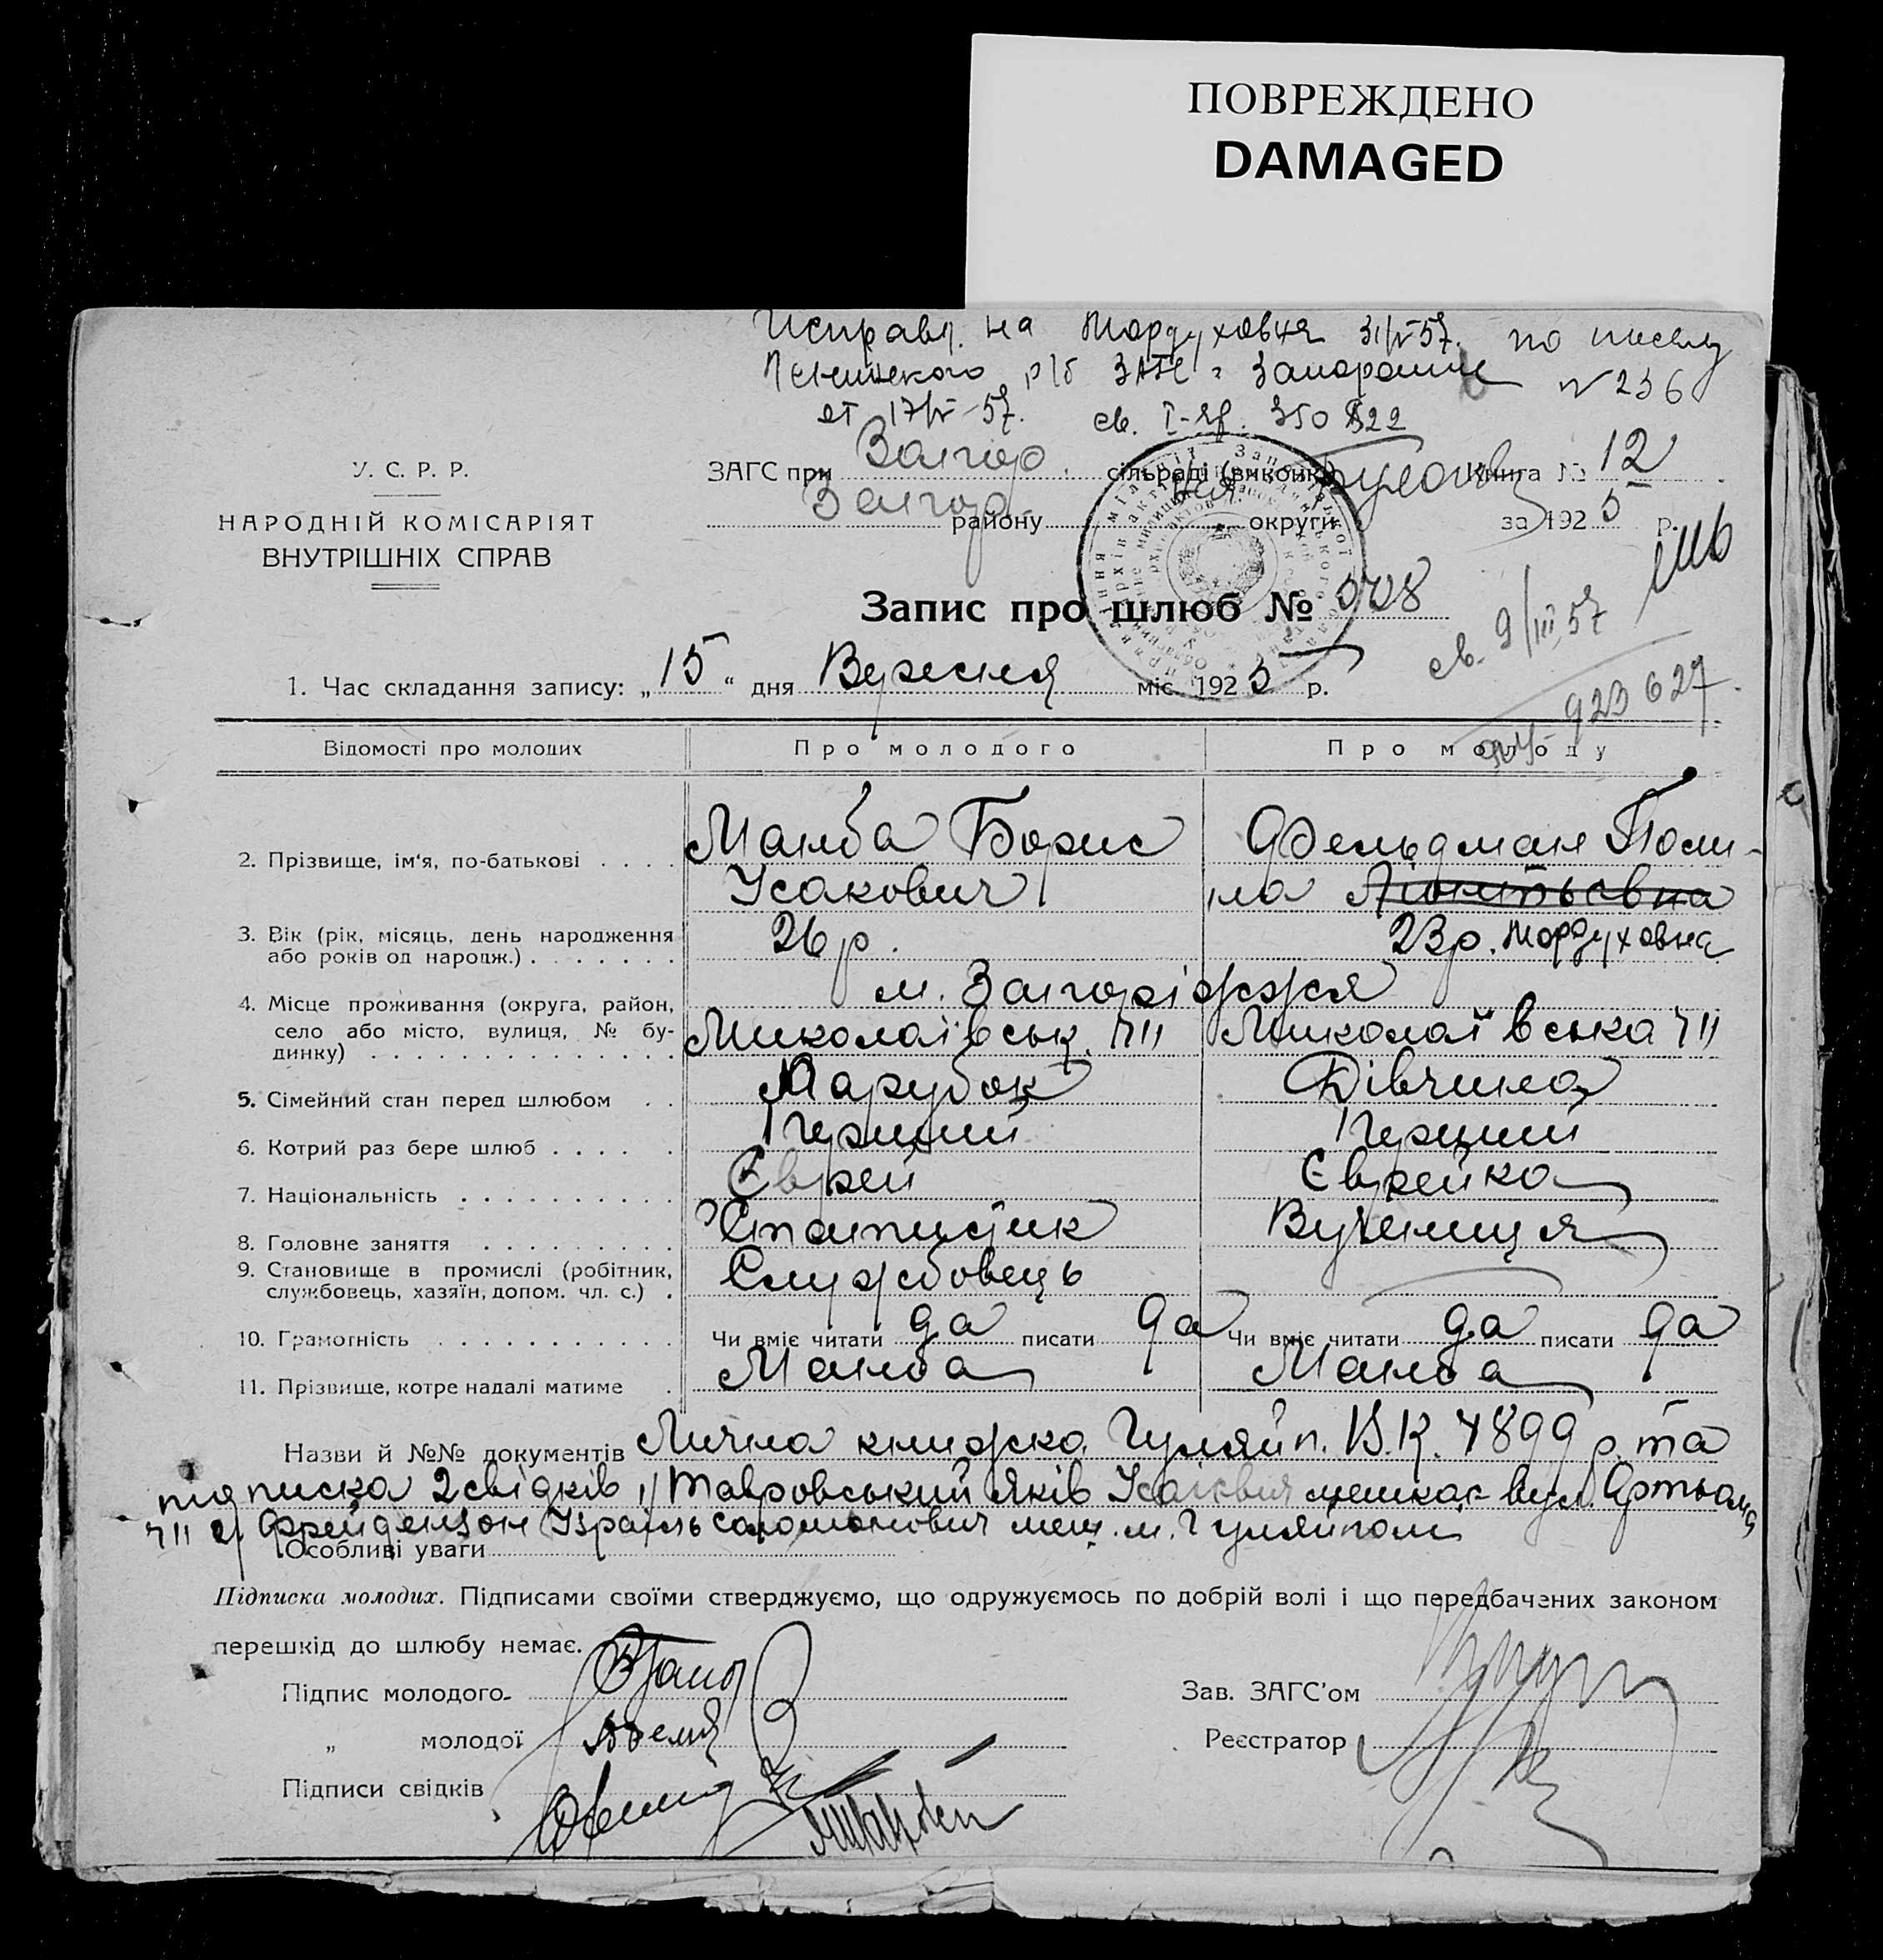 ПОВРЕЖДЕНО
DAMAGED
Исправл. на Мордуховна 31/V-57. по письму
Ленинского р/б ЗАГС г Запорожье № 236
от 17/V-57. св. I-ЯР. 350822
У. С. Р. Р.
НАРОДНІЙ КОМІСАРІЯТ
ВНУТРІШНІХ СПРАВ
ЗАГС при Запор. сільраді (виконк.) Книга № 12
Запор. району округи за 1925 р.
Запис про шлюб №
св. 9/III 57
923627
1. Час складання запису: „15“ дня Вересня міс. 1925 р.
Відомості про молодих Про молодого Про молоду
2. Прізвище, ім'я, по-батькові . . . . Манба Борис Фельдман Поли-
Ісакович на
3. Вік (рік, місяць, день народження 26 р. 23 р. Мордуховна
або років од народж.) . . . . . . .
4. Місце проживання (округа, район, м. Запоріжжя
село або місто, вулиця, № бу- Миколаївськ. Миколаївська
динку) . . . . . . . . . . . . . .
5. Сімейний стан перед шлюбом . . Парубок Дівчина
6. Котрий раз бере шлюб . . . . . Перший Перший
7. Національність . . . . . . . . . . Єврей Єврейка
8. Головне заняття . . . . . . . . . Статистик Вучениця
9. Становище в промислі (робітник, Службовець
службовець, хазяїн, допом. чл. с.) .
10. Грамотність . . . . . . . . . . . Чи вміє читати да писати да Чи вміє читати да писати да
11. Прізвище, котре надалі матиме . Манба Манба
Назви й №№ документів Лична книжка Гуляйп. В.К. 4899 р. та
підписка 2 свідків 1/ Тавровський Яків мешкає вул. Артьома
2/ Фрейдензон Ізраїль Соломонович меш. м. Гуляйполі
Особливі уваги
Підписка молодих. Підписами своїми стверджуємо, що одружуємось по добрій волі і що передбачених законом
перешкід до шлюбу немає.
Підпис молодого Зав. ЗАГС'ом
„ молодої Реєстратор
Підписи свідків